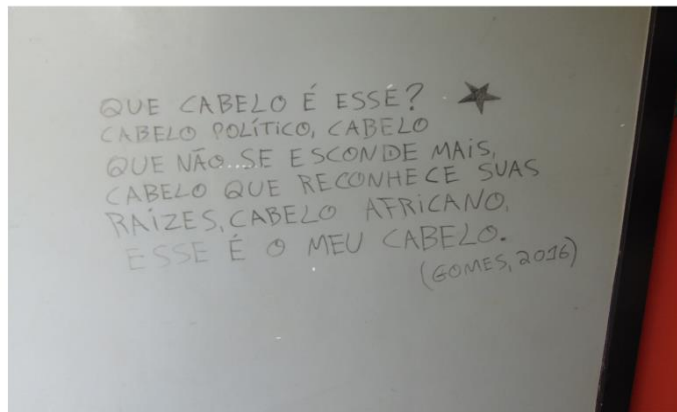 QUE CABELO É ESSE?
CABELO POLÍTICO, CABELO
QUE NÃO SE ESCONDE MAIS,
CABELO QUE RECONHECE SUAS
RAÍZES, CABELO AFRICANO,
ESSE É O MEU CABELO.
(GOMES, 2016)